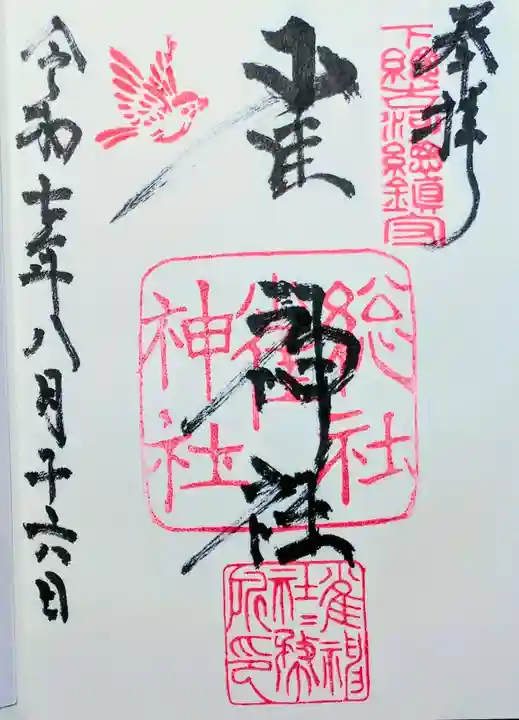 奉拝
下総古河総鎮守
雀神社
総社
御
神社
雀神社社務所印
令和七年八月十六日